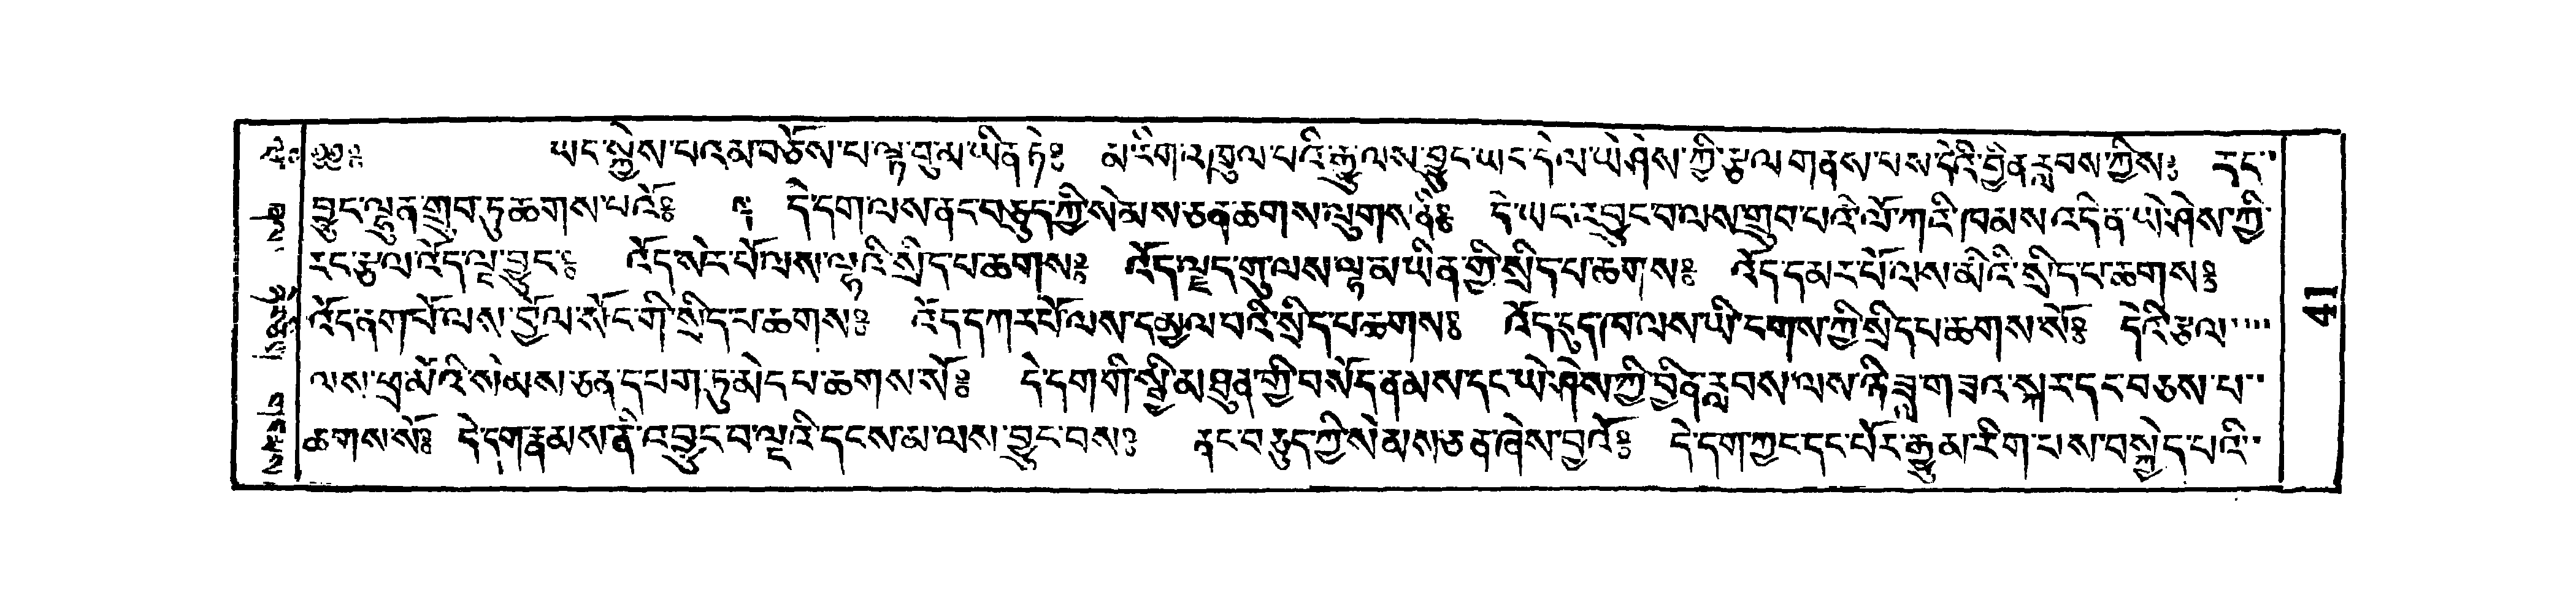 ༄༅༔ ཡང་སྐྱེས་པའམ་བཅོས་པ་ལྟ་བུ་མ་ཡིན་ཏེ༔ མ་རིག་འཁྲུལ་པའི་རྒྱུ་ལས་བྱུང་ཡང་དེ་ལ་ཡེ་ཤེས་ཀྱི་རྩལ་གནས་པས་དེའི་བྱིན་རླབས་ཀྱིས༔ རང་
བྱུང་ལྷུན་གྲུབ་ཏུ་ཆགས་པའོ༔ དེ་དག་ལས་ནང་བཅུད་ཀྱི་སེམས་ཅན་ཆགས་ལུགས་ནི༔ དེ་ཡང་འབྱུང་བ་ལས་གྲུབ་པའི་ལོ་ཀའི་ཁམས་འདི་ན་ཡེ་ཤེས་ཀྱི་
རང་རྩལ་འོད་ལྔ་བྱུང་༔ འོད་སེར་པོ་ལས་ལྷའི་སྲིད་པ་ཆགས༔ འོད་ལྗང་གུ་ལས་ལྷ་མ་ཡིན་གྱི་སྲིད་པ་ཆགས༔ འོད་དམར་པོ་ལས་མིའི་སྲིད་པ་ཆགས༔
འོད་ནག་པོ་ལས་བྱོལ་སོང་གི་སྲིད་པ་ཆགས༔ འོད་དཀར་པོ་ལས་དམྱལ་བའི་སྲིད་པ་ཆགས༔ འོད་དུད་ཁ་ལས་ཡི་དགས་ཀྱི་སྲིད་པ་ཆགས་སོ༔ དེའི་རྩལ་
ལས་ཕྲ་མོའི་སེམས་ཅན་དཔག་ཏུ་མེད་པ་ཆགས་སོ༔ དེ་དག་གི་སྤྱི་མཐུན་གྱི་བསོད་ནམས་དང་ཡེ་ཤེས་ཀྱི་བྱིན་རླབས་ལས་ཉི་ཟླ་གཟའ་སྐར་དང་བཅས་པ་
ཆགས་སོ༔ དེ་དག་རྣམས་ནི་འབྱུང་བ་ལྔའི་དྭངས་མ་ལས་བྱུང་བས༔ ནང་བཅུད་ཀྱི་སེམས་ཅན་ཞེས་བྱའོ༔ དེ་དག་ཀྱང་དང་པོར་རྒྱུ་མ་རིག་པས་བསྐྱེད་པའི་